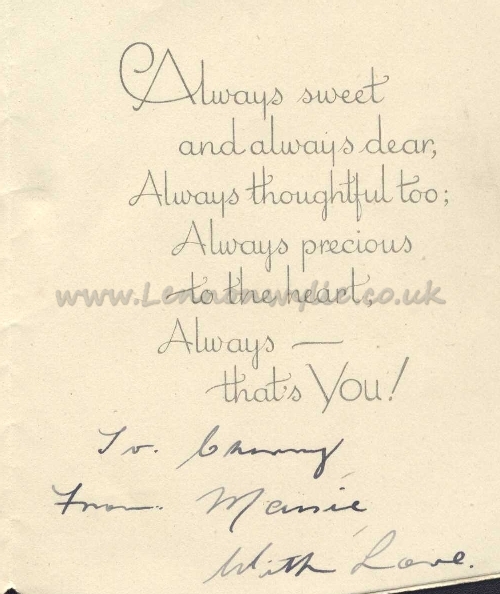 Always sweet
and always dear,
Always thoughtful too;
Always precious
to the heart,
Always —
that's YOU!
To.
From. Maisie
With Love.